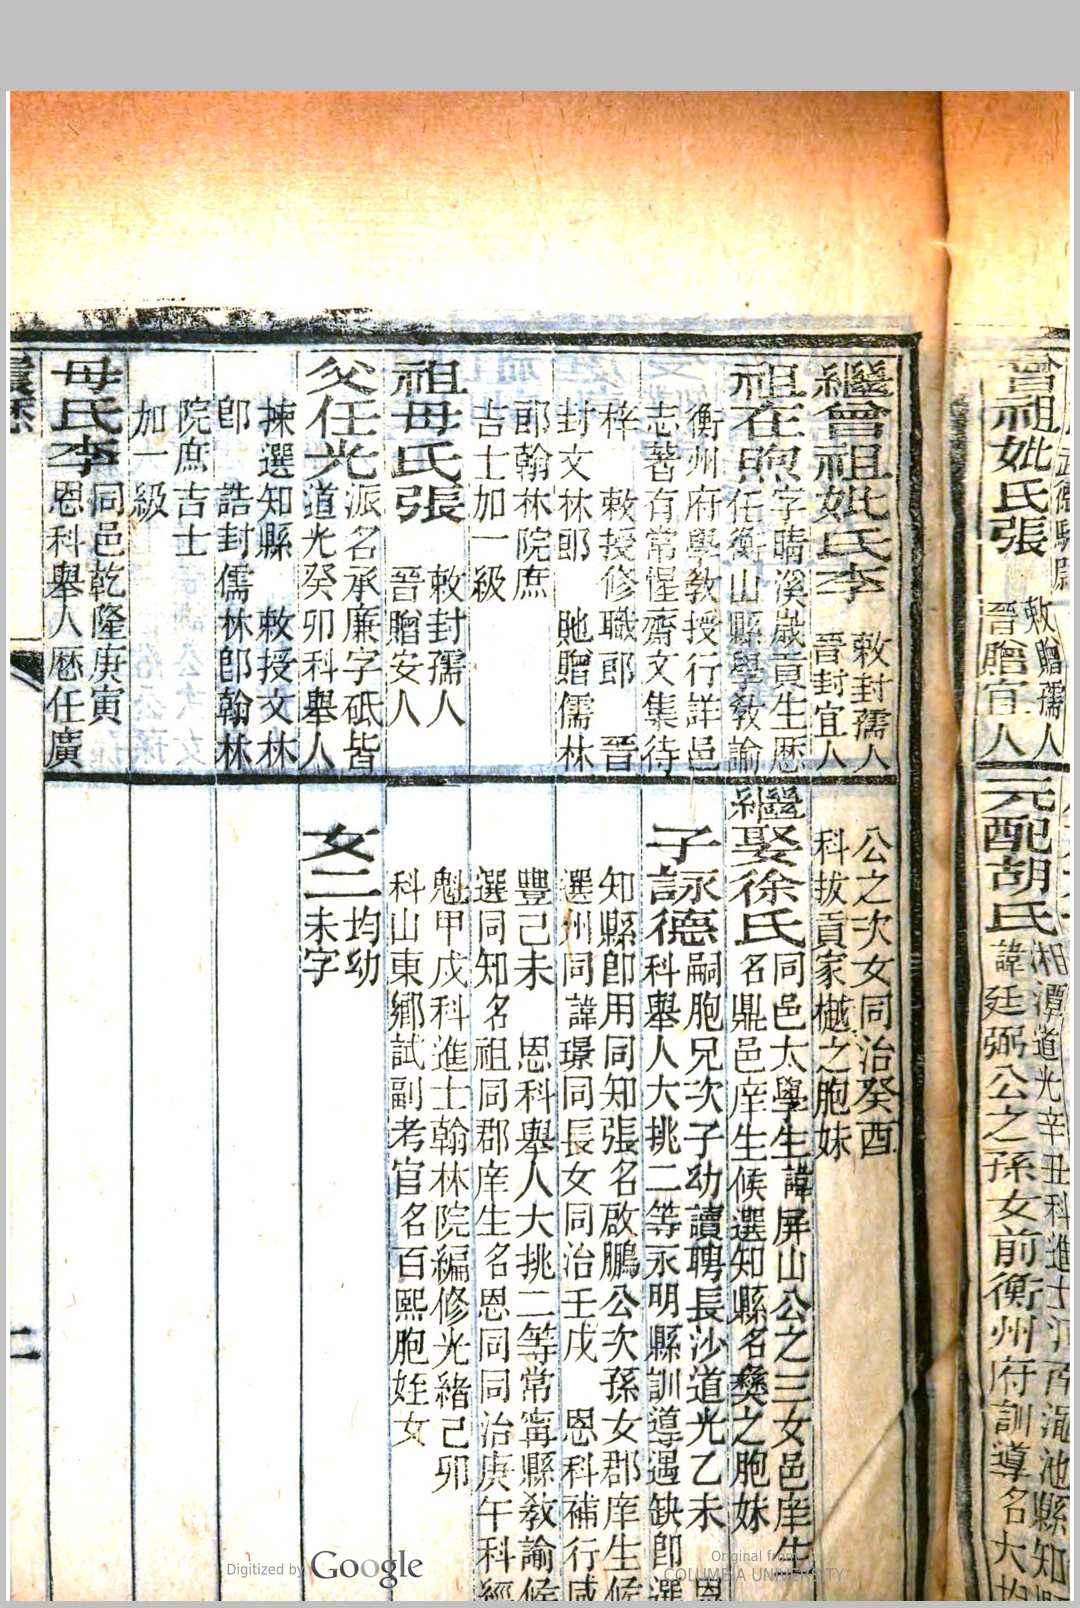 曾祖妣氏張
敕贈孺人
晉贈宜人
繼曾祖妣氏李
敕封孺人
晉封宜人
祖在煦
字晴溪歲貢生歷
任衡山縣學教諭
衡州府學教授行詳邑
志著有常惺齋文集待
梓 敕授修職郎 晉
封文林郎 貤贈儒林
郎翰林院庶
吉士加一級
祖母氏張
敕封孺人
晉贈安人
父任光
派名承廉字砥皆
道光癸卯科舉人
揀選知縣 敕授文林
郎 誥封儒林郎翰林
院庶吉士
加一級
母氏李
同邑乾隆庚寅
恩科舉人歷任廣
元配胡氏
湘潭道光辛丑科進士
諱廷弼公之孫女前衡州府訓導名大
公之次女同治癸酉
科拔貢家樾之胞妹
繼娶徐氏
同邑太學生諱屏山公之三女邑庠生
名鼎邑庠生候選知縣名彝之胞妹
子詠德
嗣胞兄次子幼讀聘長沙道光乙未 恩
科舉人大挑二等永明縣訓導遇缺卽選
知縣卽用同知張名啟鵬公次孫女郡庠生候
選州同諱璟同長女同治壬戌 恩科補行咸
豐己未 恩科舉人大挑二等常寧縣教諭候
選同知名祖同郡庠生名恩同同治庚午科經
魁甲戌科進士翰林院編修光緒己卯
科山東鄉試副考官名百熙胞姪女
女二
均幼
未字
二
Digitized by Google
Original from
COLUMBIA UNIVERSITY